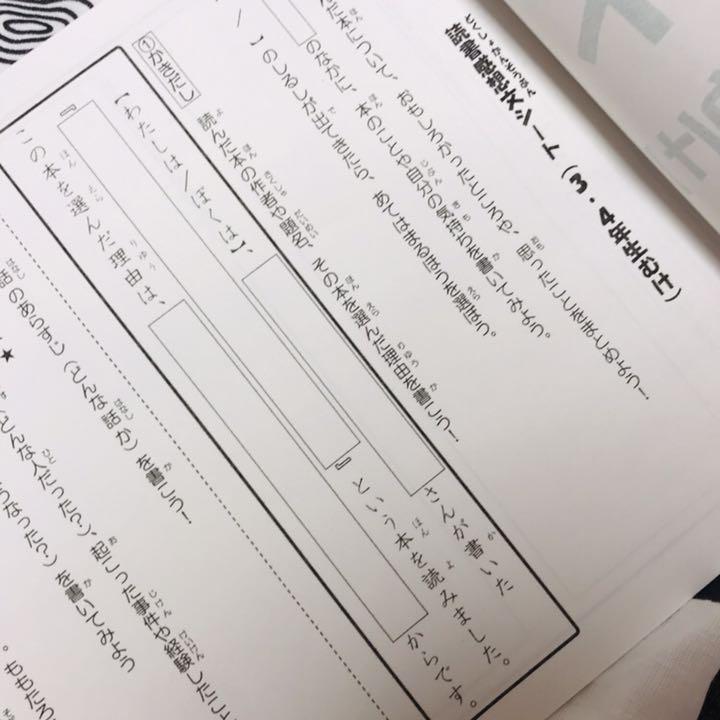 読書感想文シート（3・4年生むけ）
だ本について、おもしろかったところや、思ったことをまとめよう！
のなかに、本のことや自分の気持ちを書いてみよう。
／ 】のしるしが出てきたら、あてはまるほうを選ぼう。
①かきだし
読んだ本の作者や題名、その本を選んだ理由を書こう！
【わたしは／ぼくは】、 さんが書いた
『 』という本を読みました。
この本を選んだ理由は、 からです。
話のあらすじ（どんな話か）を書こう！
★
どんな人だった？）、起こった事件や経験したこ
うなった？）を書いてみよう
。ももたろ